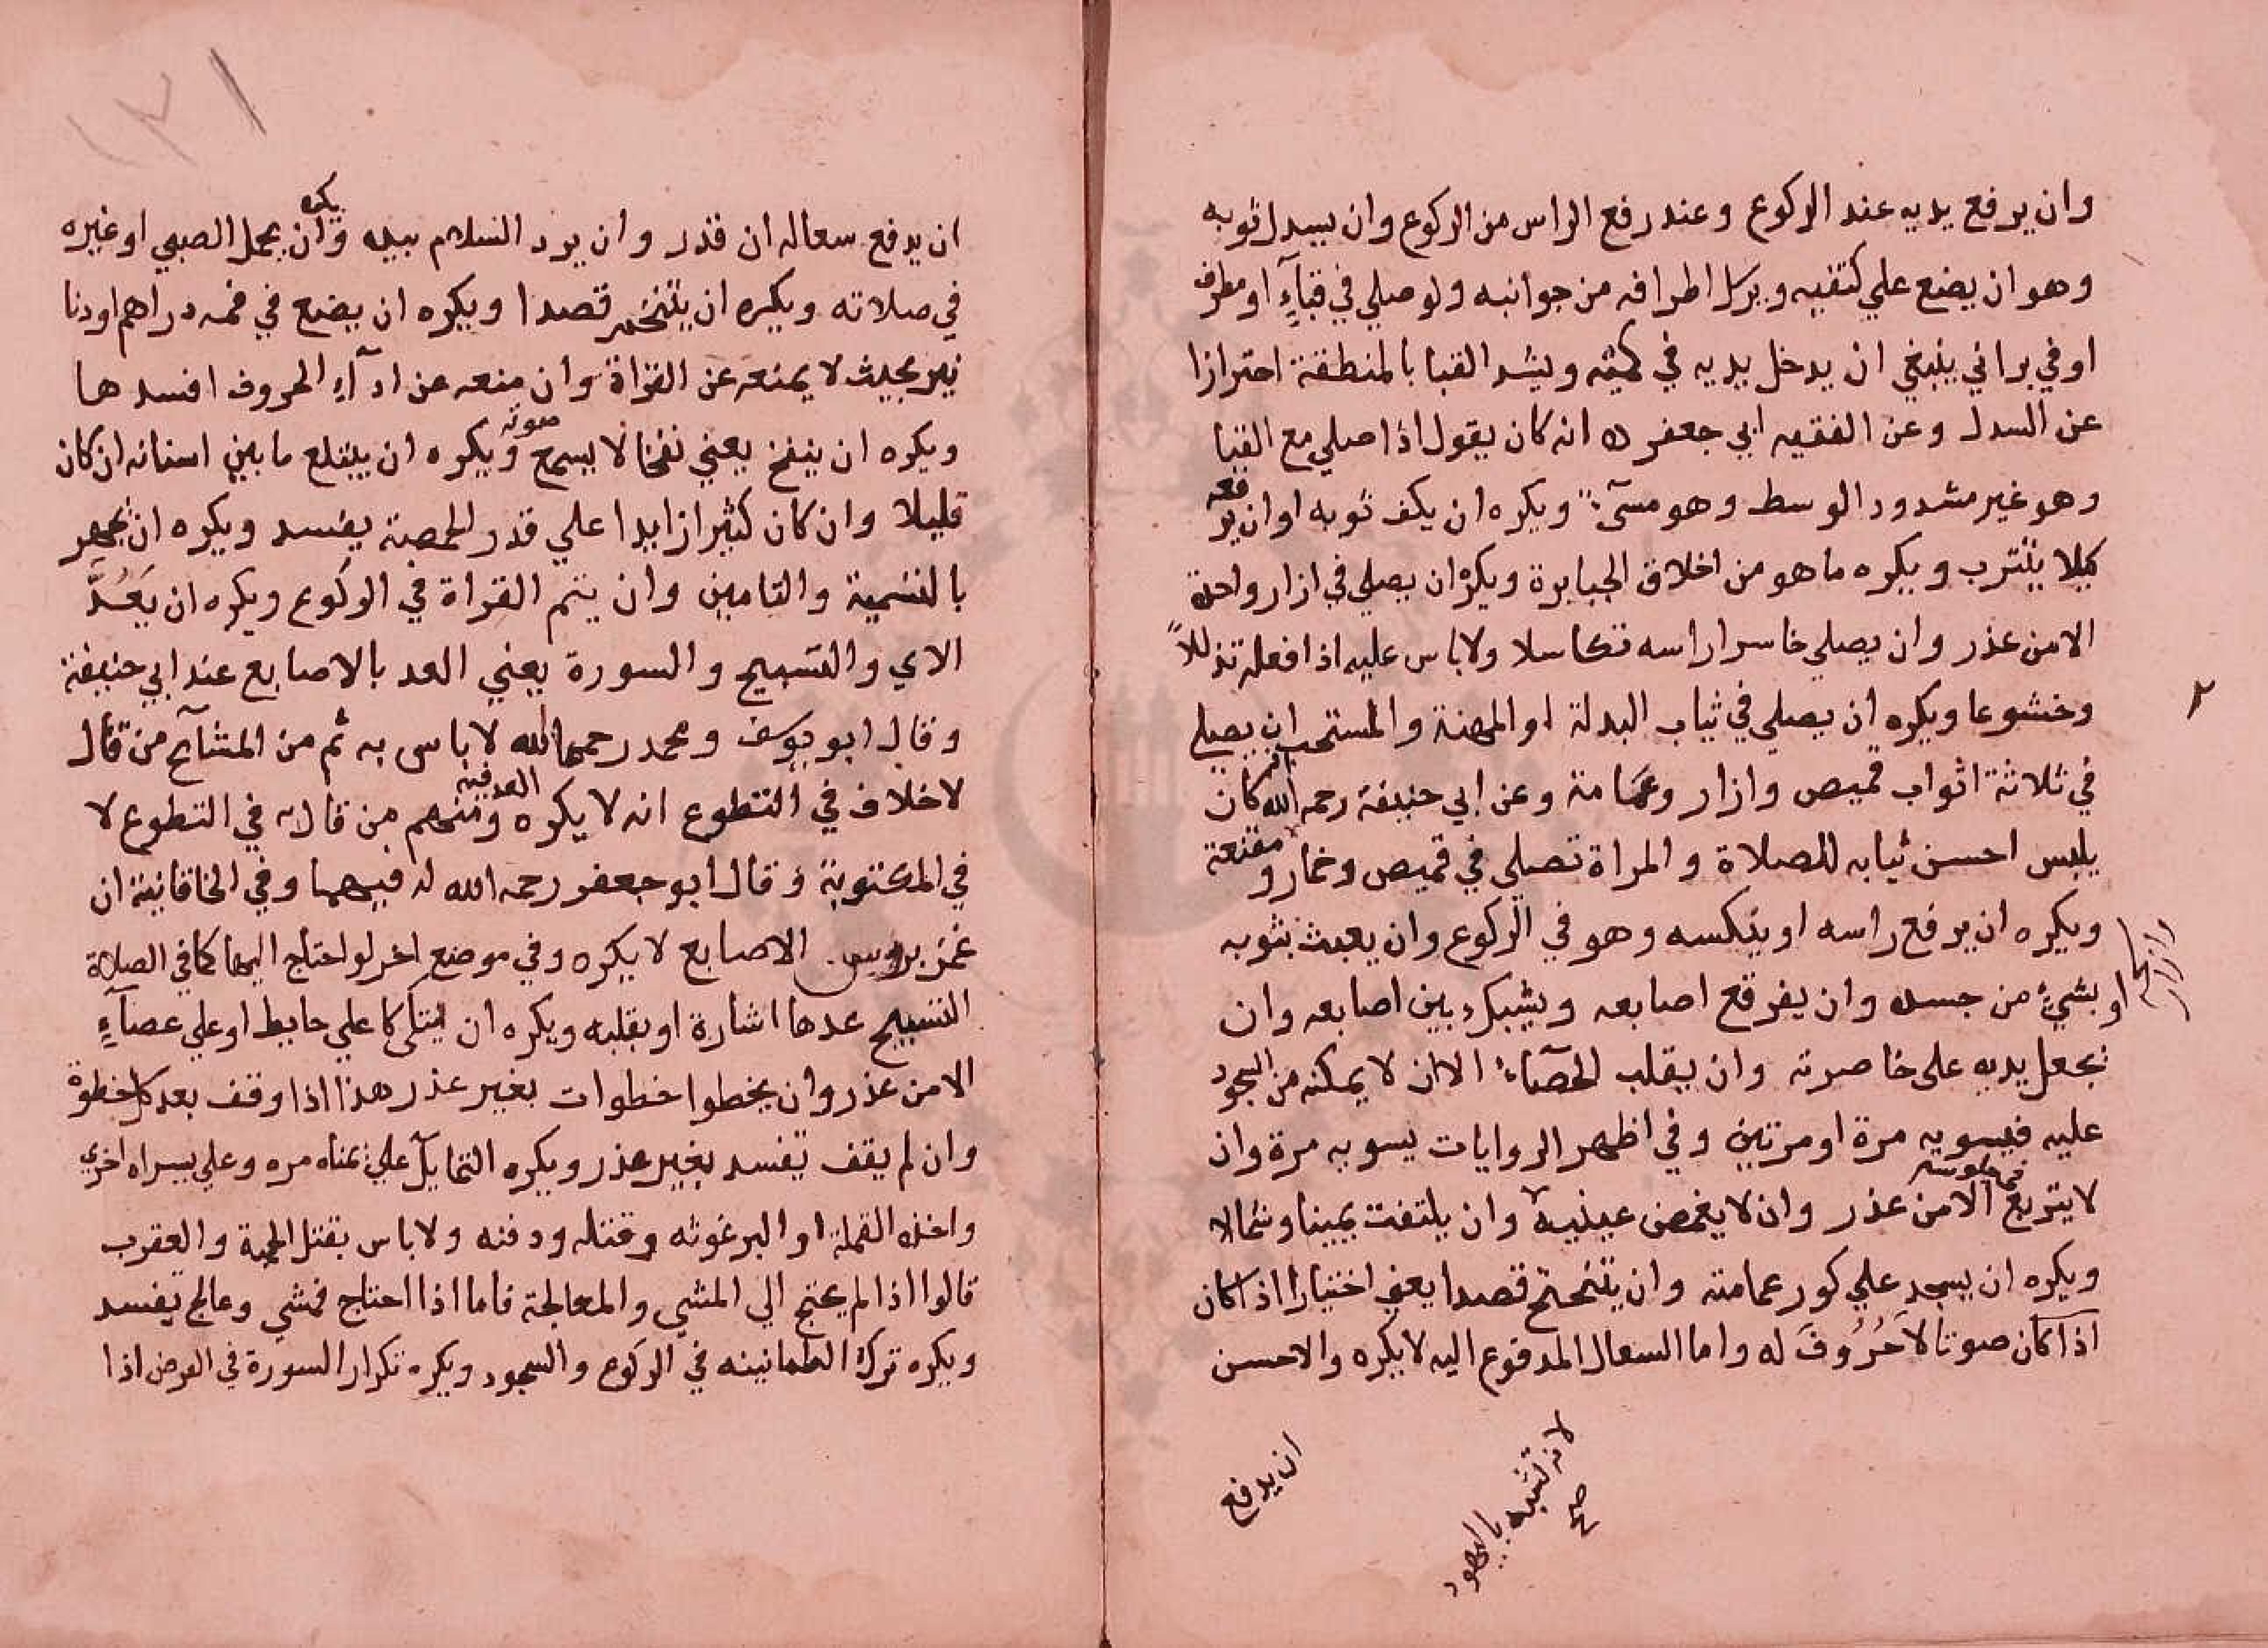 وان يرفع يديه عند الركوع وعند رفع الراس من الركوع وان يسدل ثوبه
وهو ان يضع علي كتفيه ويرسل اطرافه من جوانبه ولو صلي في قباء او مطرف
او في براني ينبغي ان يدخل يديه في كميه ويشد القبا بالمنطقة احترازا
عن السدل وعن الفقيه ابي جعفر انه كان يقول اذا صلي مع القبا
وهو غير مشدود الوسط وهو مسيء ويكره ان يكف ثوبه او ان يرفعه
كيلا يتترب ويكره ما هو من اخلاق الجبابرة ويكره ان يصلي في ازار واحدة
الا من عذر وان يصلي حاسرا راسه تكاسلا ولا باس عليه اذا فعله تذللاً
وخشوعا ويكره ان يصلي في ثياب البدلة او المهنة والمستحب ان يصلي
في ثلاثة اثواب قميص وازار وعمامة وعن ابي حنيفة رحمه الله انه كان
يلبس احسن ثيابه للصلاة والمراة تصلي في قميص وخمار ومقنعة
ويكره ان يرفع راسه او ينكسه وهو في الركوع وان يعبث بثوبه
او بشيء من جسده وان يفرقع اصابعه ويشبك بين اصابعه وان
يجعل يديه على خاصرته وان يقلب الحصاء الا ان لا يمكنه من السجود
عليه فيسويه مرة او مرتين وفي اظهر الروايات يسويه مرة وان
لا يتربع في جلوسه الا من عذر وان لا يغمض عينيه وان يلتفت يمينا وشمالا
ويكره ان يسجد علي كور عمامته وان يتنحنح قصدا يعني اختيارا اذا كان
اذا كان صوتا لا حُرُوفَ له واما السعال المدفوع اليه لا يكره والاحسن
لانه تشبه باليهود
صح
ان يدفع
ان يدفع سعاله ان قدر وان يرد السلام بيده ويكره ان يحمل الصبي او غيره
في صلاته ويكره ان يتنخم قصدا ويكره ان يضع في فمه دراهم او دنا
نير بحيث لا يمنعه عن القراة وان منعه عن اداء الحروف افسدها
ويكره ان ينفخ يعني نفخا لا يسمع صوته ويكره ان يبتلع ما بين اسنانه ان كان
قليلا وان كان كثيرا زايدا علي قدر الحمصة يفسد ويكره ان يجهر
بالتسمية والتامين وان يتم القراة في الركوع ويكره ان يَعُدَّ
الاي والتسبيح والسورة يعني العد بالاصابع عند ابي حنيفة
وقال ابو يوسف ومحمد رحمهما الله لا باس به ثم من المشايخ من قال
لا خلاف في التطوع انه لا يكره ومنهم من قال في التطوع لا
في المكتوبة وقال ابو جعفر رحمه الله فيهما وفي الخاقانية ان
غمز بروس الاصابع لا يكره وفي موضع اخر لو احتاج اليها كما في الصلاة
التسبيح عدها اشارة او بقلبه ويكره ان يتكا علي حايط او علي عصاء
الا من عذر وان يخطوا خطوات بغير عذر هذا اذا وقف بعد كل خطوة
وان لم يقف تفسد بغير عذر ويكره التمايل علي يمناه مره وعلي يسراه اخري
واخذه القملة او البرغوثه وقتله ودفنه ولا باس بقتل الحية والعقرب
قالوا اذا لم يحتج الي المشي والمعالجة فاما اذا احتاج فمشي وعالج تفسد
ويكره ترك الطمانينه في الركوع والسجود ويكره تكرار السورة في الفرض اذا